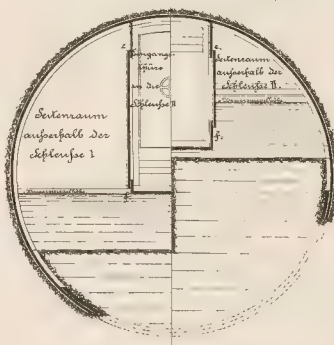 Seitenraum
außerhalb der
Schleuse I
Eingangs-
thüre
in die
Schleuse II
e.
Seitenraum
außerhalb der
Schleuse II.
f.